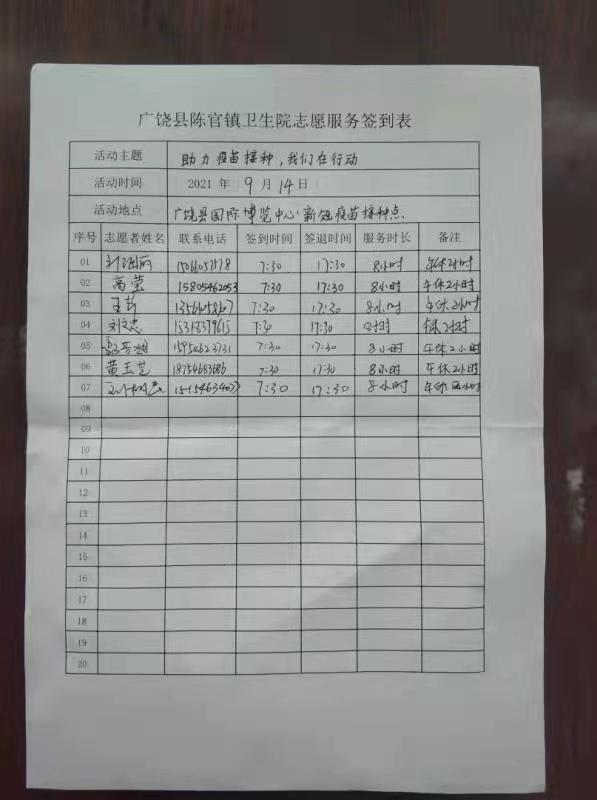 广饶县陈官镇卫生院志愿服务签到表
活动主题 助力疫苗接种,我们在行动
活动时间 2021 年 9 月 14 日
活动地点 广饶县国际博览中心新冠疫苗接种点
序号 志愿者姓名 联系电话 签到时间 签退时间 服务时长 备注
01 7:30 17:30 8小时 午休2小时
02 高莹 15805462053 7:30 17:30 8小时 午休2小时
03 7:30 17:30 8小时 午休2小时
04 刘文忠 7:30 17:30 8小时 午休2小时
05 7:30 17:30 8小时 午休2小时
06 黄玉芝 18754683686 7:30 17:30 8小时 午休2小时
07 7:30 17:30 8小时
08
09
10
11
12
13
14
15
16
17
18
19
20